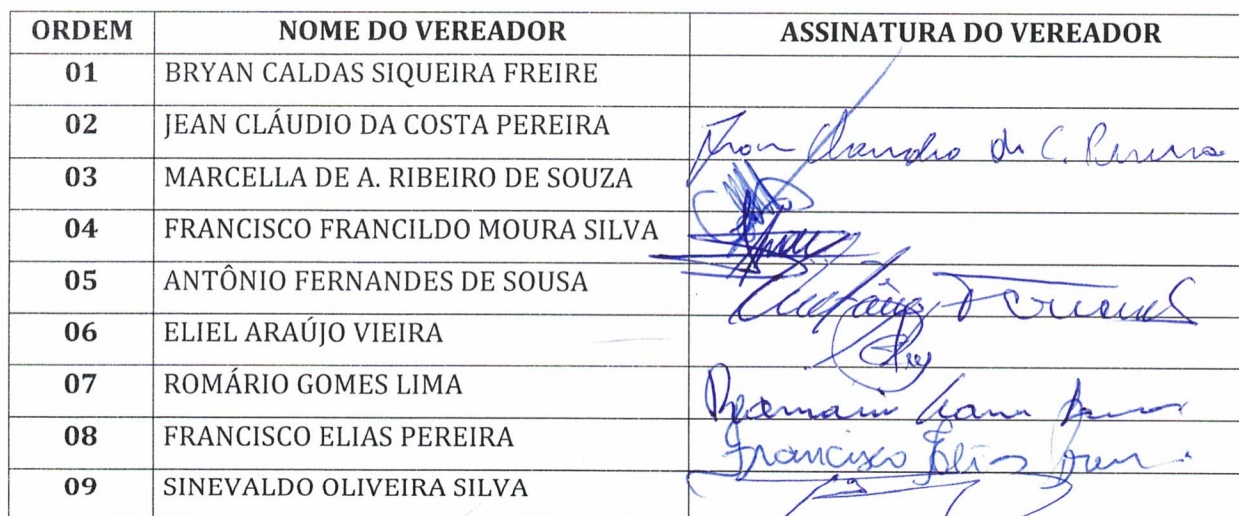 ORDEM NOME DO VEREADOR ASSINATURA DO VEREADOR
01 BRYAN CALDAS SIQUEIRA FREIRE
02 JEAN CLÁUDIO DA COSTA PEREIRA
03 MARCELLA DE A. RIBEIRO DE SOUZA
04 FRANCISCO FRANCILDO MOURA SILVA
05 ANTÔNIO FERNANDES DE SOUSA
06 ELIEL ARAÚJO VIEIRA
07 ROMÁRIO GOMES LIMA
08 FRANCISCO ELIAS PEREIRA Francisco Elias
09 SINEVALDO OLIVEIRA SILVA